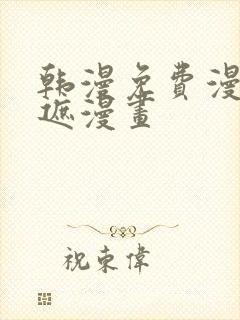 韩漫免费漫
遮漫畫
祝東偉